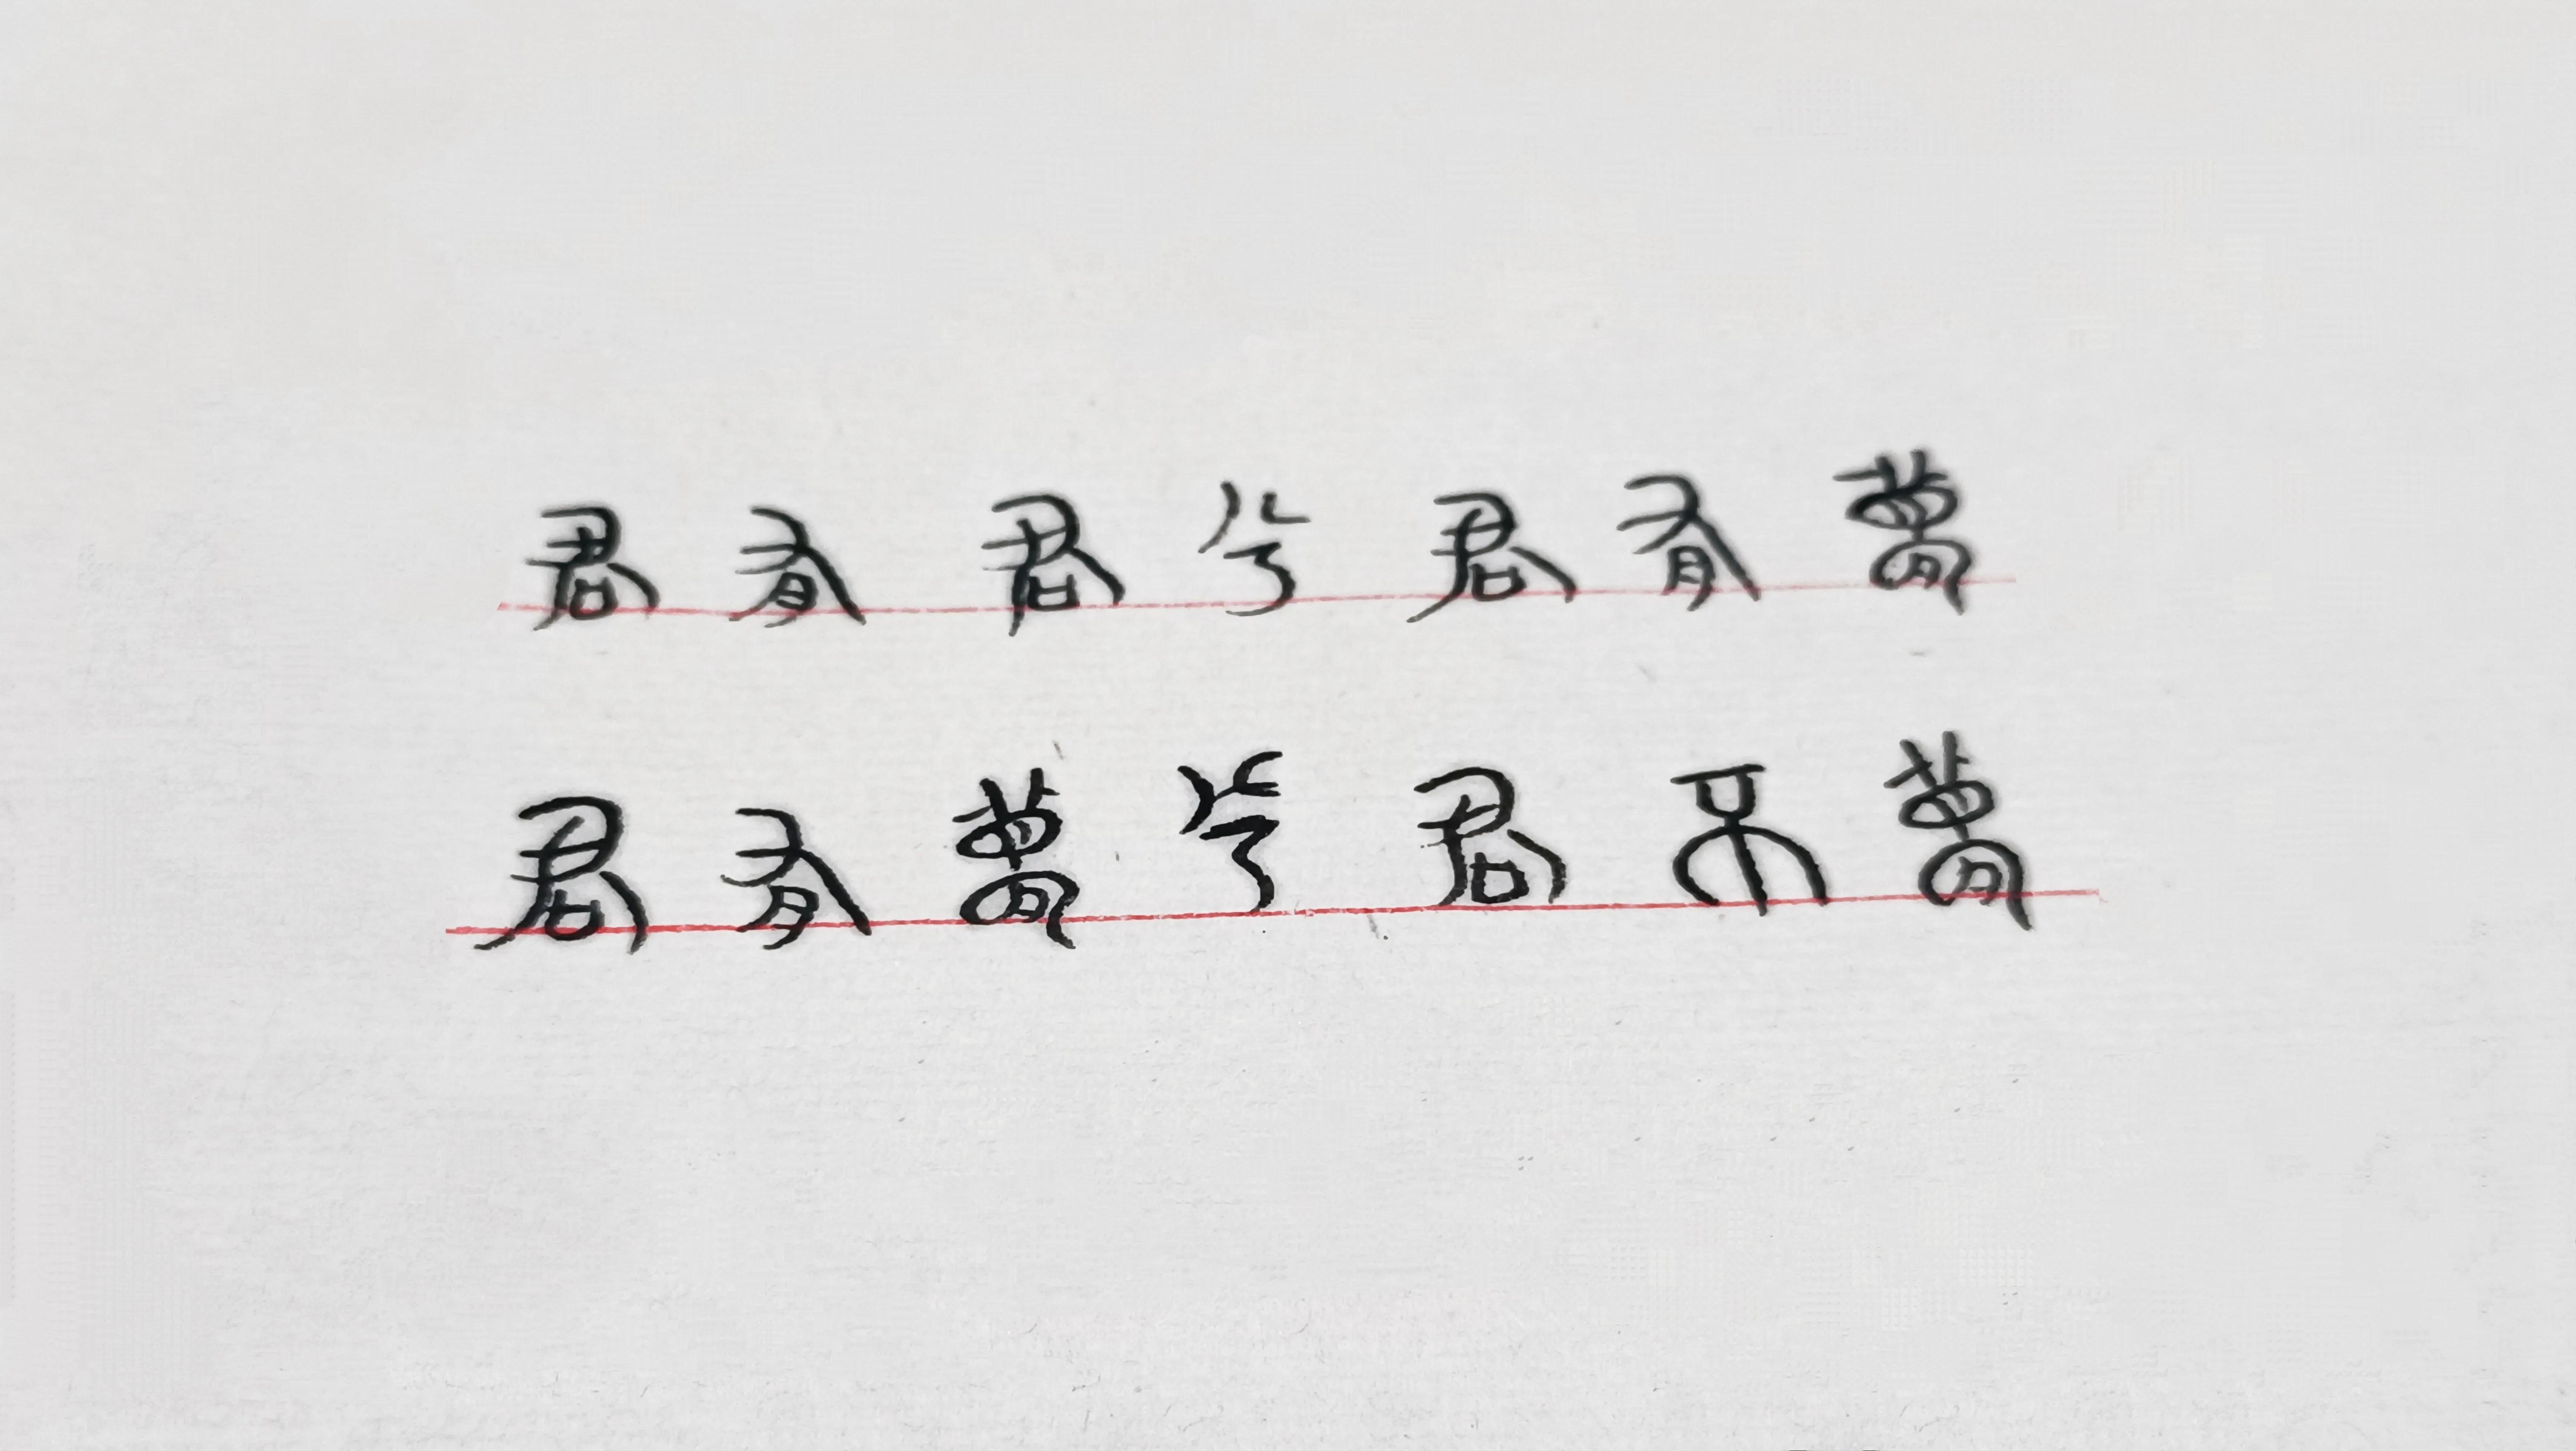 君有君兮君有萬
君有萬兮君不萬